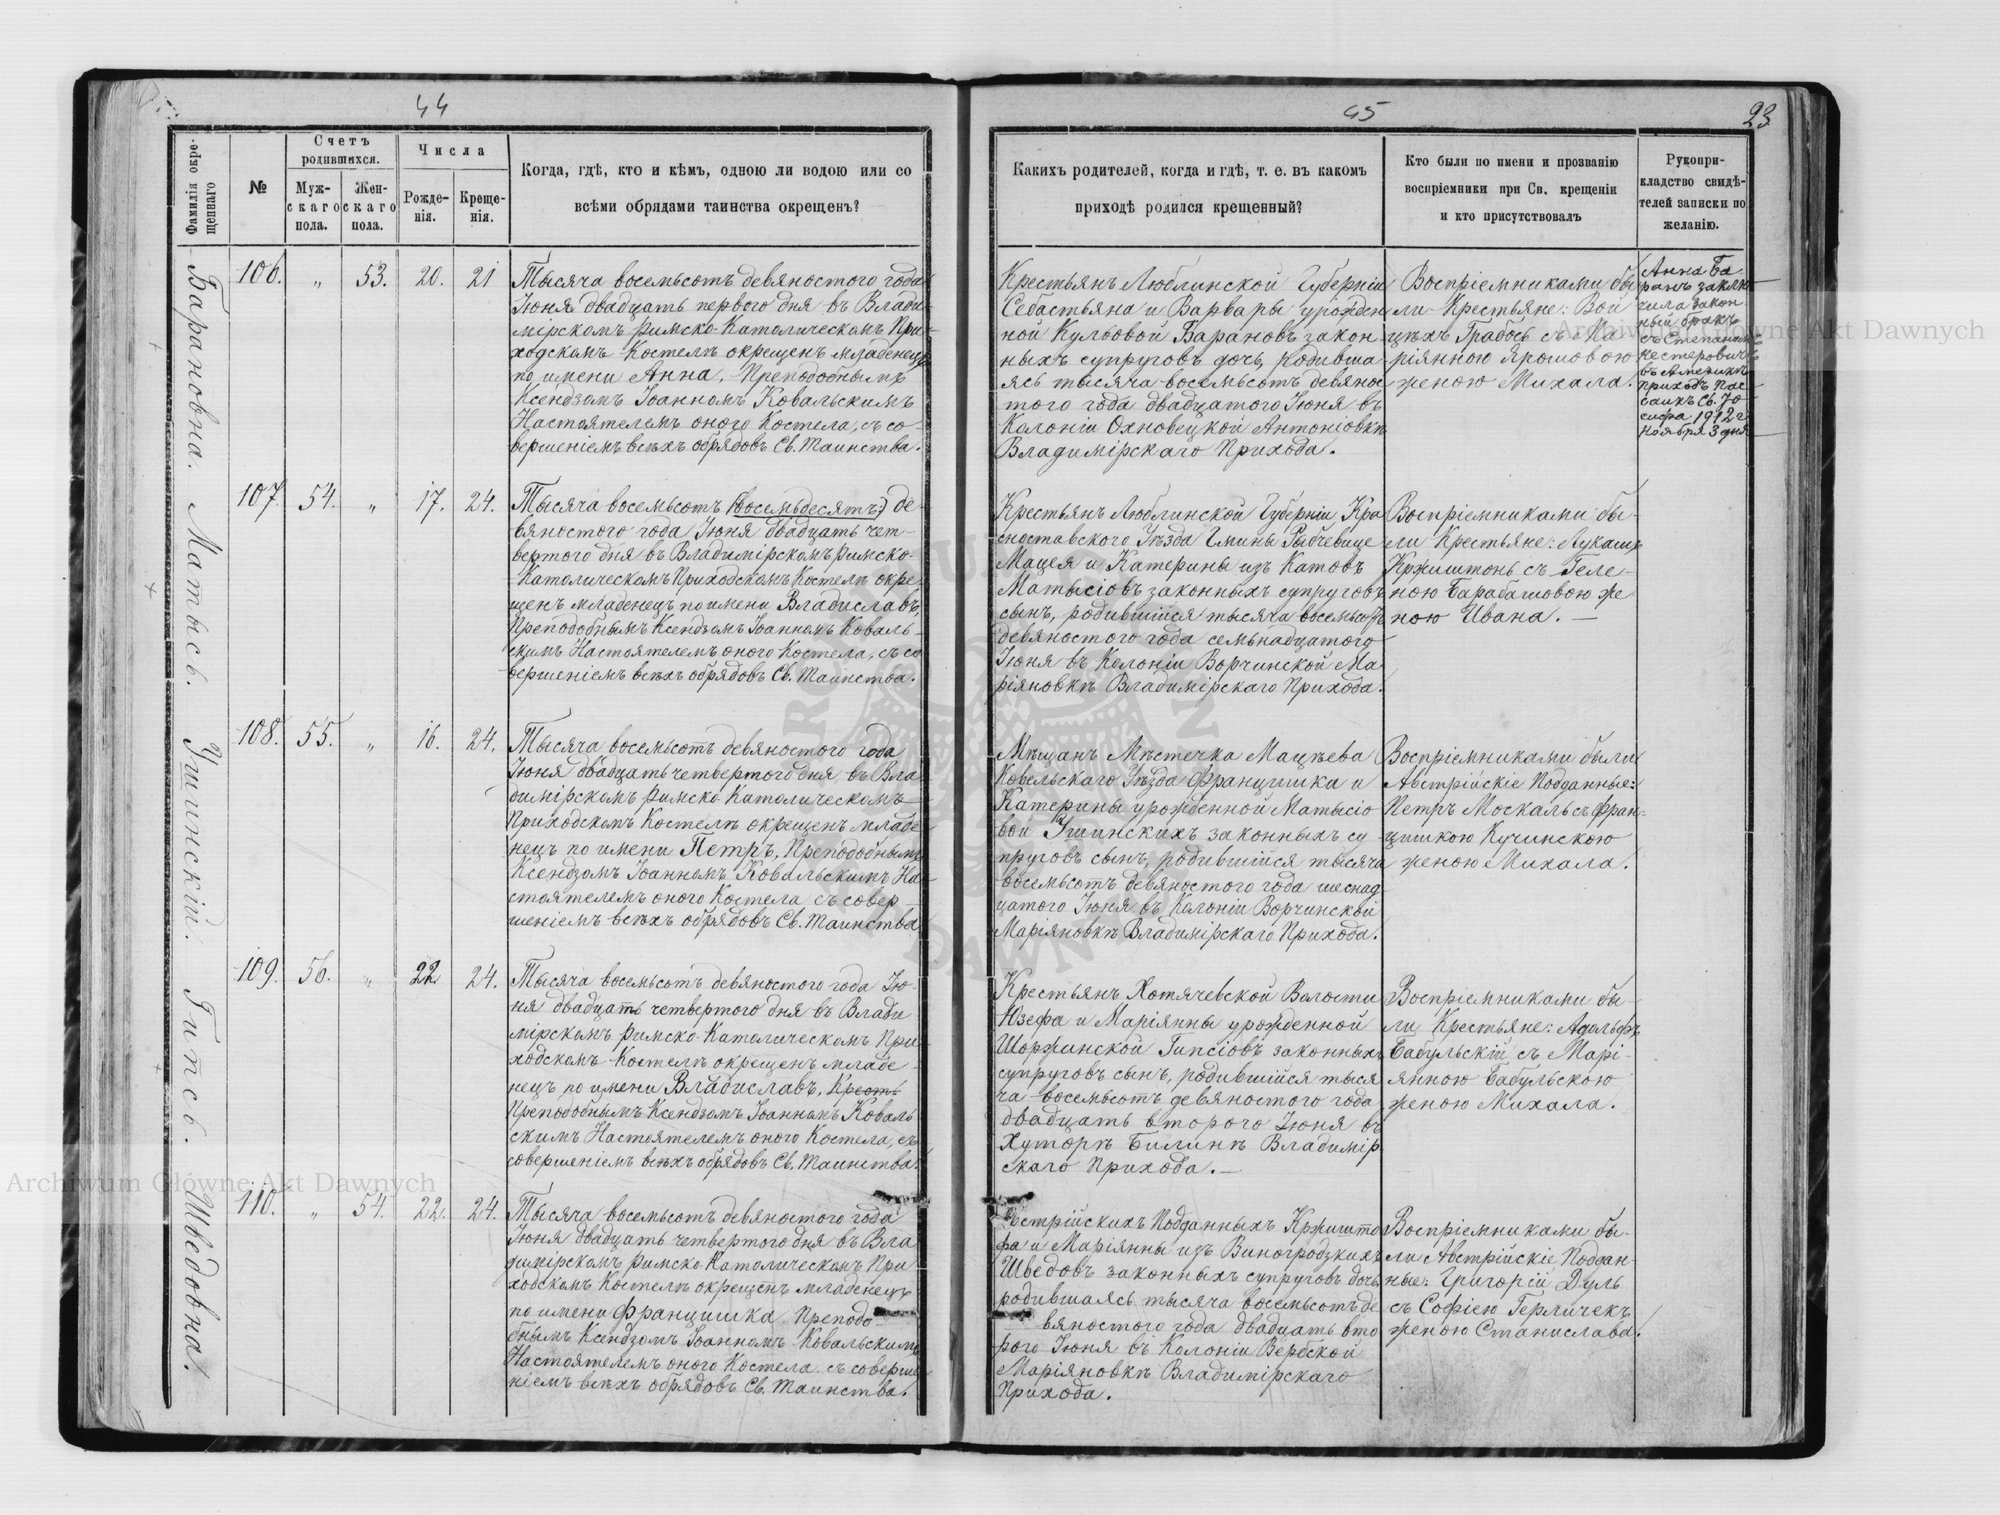 44
Фамилія окре-
щеннаго
№
Счетъ
родившихся.
Муж-
скаго
пола.
Жен-
скаго
пола.
Числа
Рожде-
нія.
Креще-
нія.
Когда, гдѣ, кто и кѣмъ, одною ли водою или со
всѣми обрядами таинства окрещенъ?
Барановна.
106.
„
53.
20.
21
Тысяча восемьсотъ девяностого года
Іюня двадцать перваго дня въ Влади-
мірскомъ Римско-Католическомъ При-
ходскомъ Костелѣ окрещенъ младенецъ
по имени Анна, Преподобнымъ
Ксендзомъ Іоанномъ Ковальскимъ
Настоятелемъ оного Костела, съ со-
вершеніемъ всѣхъ обрядовъ Св. Таинства.
Матысь.
107.
54.
„
17.
24.
Тысяча восемьсотъ (восемьдесятъ) де-
вяностого года Іюня двадцать чет-
вертого дня въ Владимірскомъ Римско-
Католическомъ Приходскомъ Костелѣ окре-
щенъ младенецъ по имени Владиславъ,
Преподобнымъ Ксендзомъ Іоанномъ Коваль-
скимъ Настоятелемъ оного Костела, съ со
вершеніемъ всѣхъ обрядовъ Св. Таинства.
Ушинскій.
108.
55.
„
16.
24.
Тысяча восемьсотъ девяностого года
Іюня двадцать четвертого дня въ Вла
димірскомъ Римско Католическомъ
Приходскомъ Костелѣ окрещенъ младе
нецъ по имени Петръ, Преподобнымъ
Ксендзомъ Іоанномъ Ковальскимъ На
стоятелемъ оного Костела съ совер
шеніемъ всѣхъ обрядовъ Св. Таинства
Гипсь.
109.
56.
„
22.
24.
Тысяча восемьсотъ девяностого года Ію-
ня двадцать четвертого дня въ Влади
мірскомъ Римско-Католическомъ При-
ходскомъ Костелѣ окрещенъ младе-
нецъ по имени Владиславъ, Крестъ
Преподобнымъ Ксендзомъ Іоанномъ Коваль
скимъ Настоятелемъ оного Костела, съ
совершеніемъ всѣхъ обрядовъ Св. Таинства.
Шведовна.
110.
„
54.
22.
24.
Тысяча восемьсотъ девяностого года
Іюня двадцать четвертого дня въ Вла
димірскомъ Римско-Католическомъ При
ходскомъ Костелѣ окрещенъ младенецъ
по имени Францишка, Преподо
бнымъ Ксендзомъ Іоанномъ Ковальскимъ
Настоятелемъ оного Костела съ соверше
ніемъ всѣхъ обрядовъ Св. Таинства.
45
23
Какихъ родителей, когда и гдѣ, т. е. въ какомъ
приходѣ родился крещенный?
Кто были по имени и прозванію
воспріемники при Св. крещеніи
и кто присутствовалъ
Рукопри-
кладство свидѣ-
телей записки по
желанію.
Крестьянъ Люблинской Губерніи
Себастьяна и Варвары урожден
ной Кулbовой Барановъ закон
ныхъ супруговъ дочь, родивша
ясь тысяча восемьсотъ девяно
того года двадцатого Іюня въ
Колоніи Охновецкой Антоновкѣ
Владимірскаго Прихода.
Воспріемниками бы
ли Крестьяне: Вой
цѣхъ Грабось съ Ма
ріянною Яромовою
женою Михала.
Анна Ба-
ранъ заклю
чила закон
ный бракъ
съ Степаномъ
Нестеровичъ
въ Америкѣ
приходъ Пас
саикъ Св. Іо
сифа 1912 г.
ноября 3 дня
Крестьянъ Люблинской Губерніи Кра
сноставского Уѣзда Гмины Рыбчевице
Мацея и Катерины изъ Катовъ
Матысіовъ законныхъ супруговъ
сынъ, родившійся тысяча восемьсотъ
девяностого года семьнадцатого
Іюня въ Колоніи Ворчинской Ма
ріяновкѣ Владимірскаго Прихода.
Воспріемниками бы-
ли Крестьяне: Лукашъ
Кржиштонь съ Геле-
ною Барабашовою же
ною Ивана. —
Мѣщанъ Мѣстечка Мацѣева
Ковельскаго Уѣзда Францишка и
Катерины урожденной Матысіо
вой Ушинскихъ законныхъ су
пруговъ сынъ, родившійся тысяча
восемьсотъ девяностого года шеснад
цатого Іюня въ Колоніи Ворчинской
Маріяновкѣ Владимірскаго Прихода.
Воспріемниками были
Австрійскіе Подданные:
Петръ Москаль съ Фран-
цишкою Кучинскою
женою Михала.
Крестьянъ Хотячевской Волости
Юзефа и Маріянны урожденной
Шоржинской Гипсіовъ законныхъ
супруговъ сынъ, родившійся тыся
ча восемьсотъ девяностого года
двадцать второго Іюня въ
Хуторѣ Билинѣ Владимір
скаго Прихода. —
Воспріемниками бы-
ли Крестьяне: Адольфъ
Бабульскій съ Марі-
янною Бабульскою
женою Михала.
встрійскихъ Подданныхъ Кржишто
фа и Маріянны изъ Виногродзкихъ
Шведовъ законныхъ супруговъ дочь
родившаясь тысяча восемьсотъ де
вяностого года двадцать вто
рого Іюня въ Колоніи Вербской
Маріяновкѣ Владимірскаго
Прихода.
Воспріемниками бы-
ли Австрійскіе Поддан-
ные: Григорій Дуль
съ Софіею Герличекъ
женою Станислава.
Archiwum Główne Akt Dawnych
Archiwum Główne Akt Dawnych